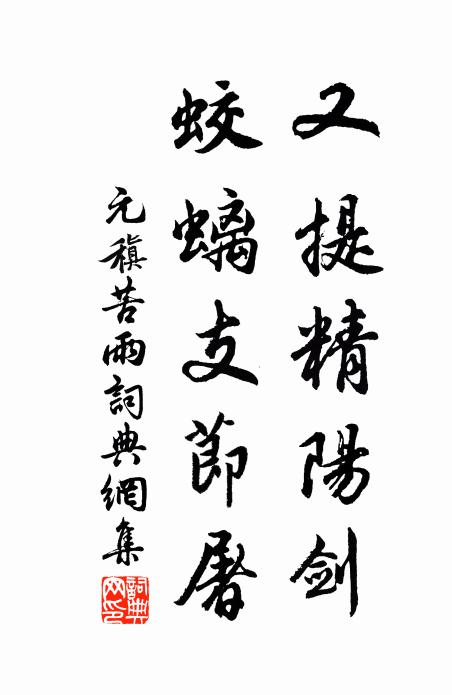 又提精陽剑
蛟螭支節屠
元稹苦雨詞典網集
詞典网印